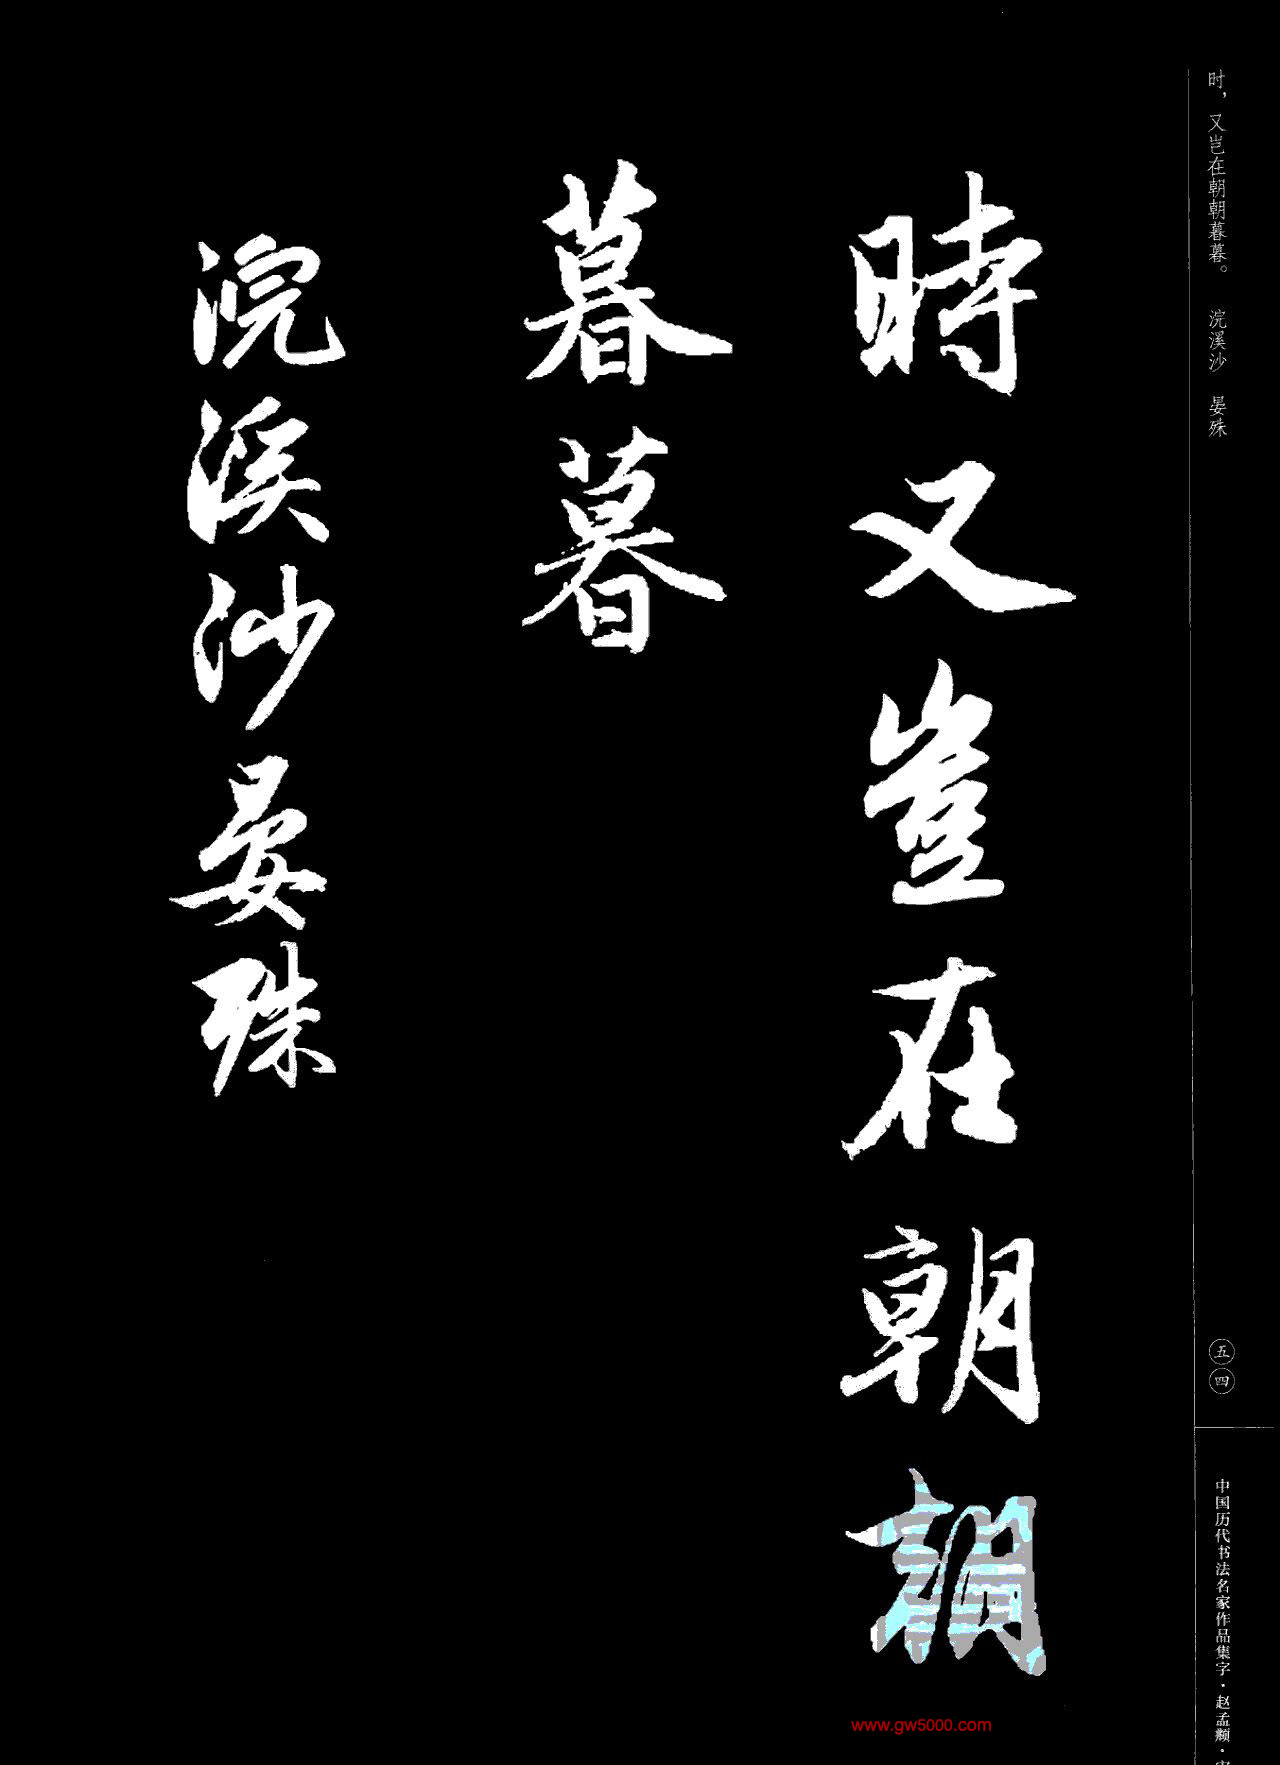 时，又岂在朝朝暮暮。 浣溪沙 晏殊
時又豈在朝朝
暮暮
浣溪沙晏殊
五四
中国历代书法名家作品集字·赵孟頫·
www.gw5000.com